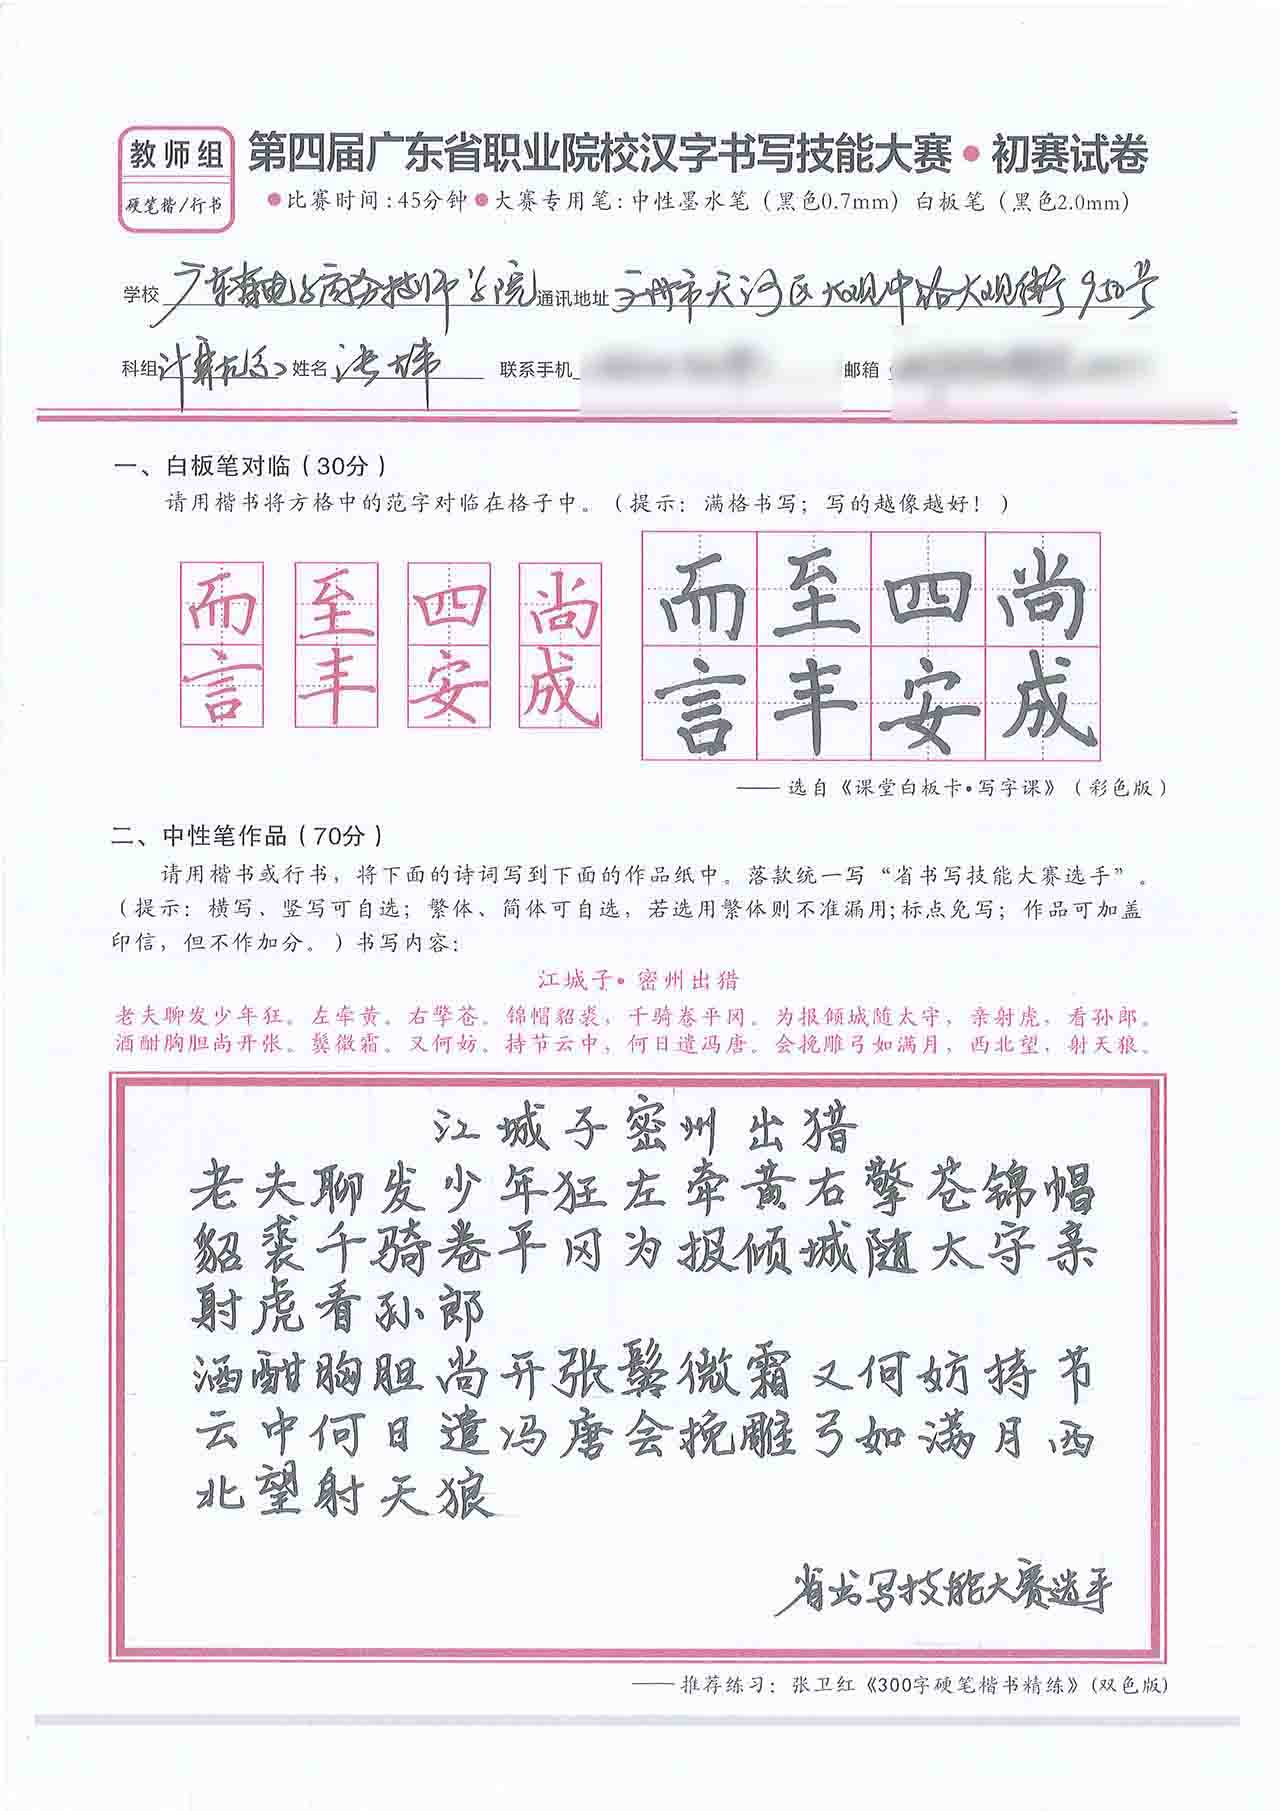 教师组
硬笔楷/行书
第四届广东省职业院校汉字书写技能大赛•初赛试卷
•比赛时间:45分钟•大赛专用笔:中性墨水笔（黑色0.7mm）白板笔（黑色2.0mm）
学校 广东省电子商务技师学院 通讯地址 广州市天河区大观中路大观街950号
科组 计算机系 姓名 张 联系手机 邮箱
一、白板笔对临（30分）
请用楷书将方格中的范字对临在格子中。（提示：满格书写；写的越像越好！）
而 至 四 尚 而 至 四 尚
言 丰 安 成 言 丰 安 成
——选自《课堂白板卡•写字课》（彩色版）
二、中性笔作品（70分）
请用楷书或行书，将下面的诗词写到下面的作品纸中。落款统一写“省书写技能大赛选手”。
（提示：横写、竖写可自选；繁体、简体可自选，若选用繁体则不准漏用;标点免写；作品可加盖
印信，但不作加分。）书写内容：
江城子•密州出猎
老夫聊发少年狂。左牵黄。右擎苍。锦帽貂裘，千骑卷平冈。为报倾城随太守，亲射虎，看孙郎。
酒酣胸胆尚开张。鬓微霜。又何妨。持节云中，何日遣冯唐。会挽雕弓如满月，西北望，射天狼。
江城子密州出猎
老夫聊发少年狂左牵黄右擎苍锦帽
貂裘千骑卷平冈为报倾城随太守亲
射虎看孙郎
酒酣胸胆尚开张鬓微霜又何妨持节
云中何日遣冯唐会挽雕弓如满月西
北望射天狼
省书写技能大赛选手
——推荐练习：张卫红《300字硬笔楷书精练》(双色版)